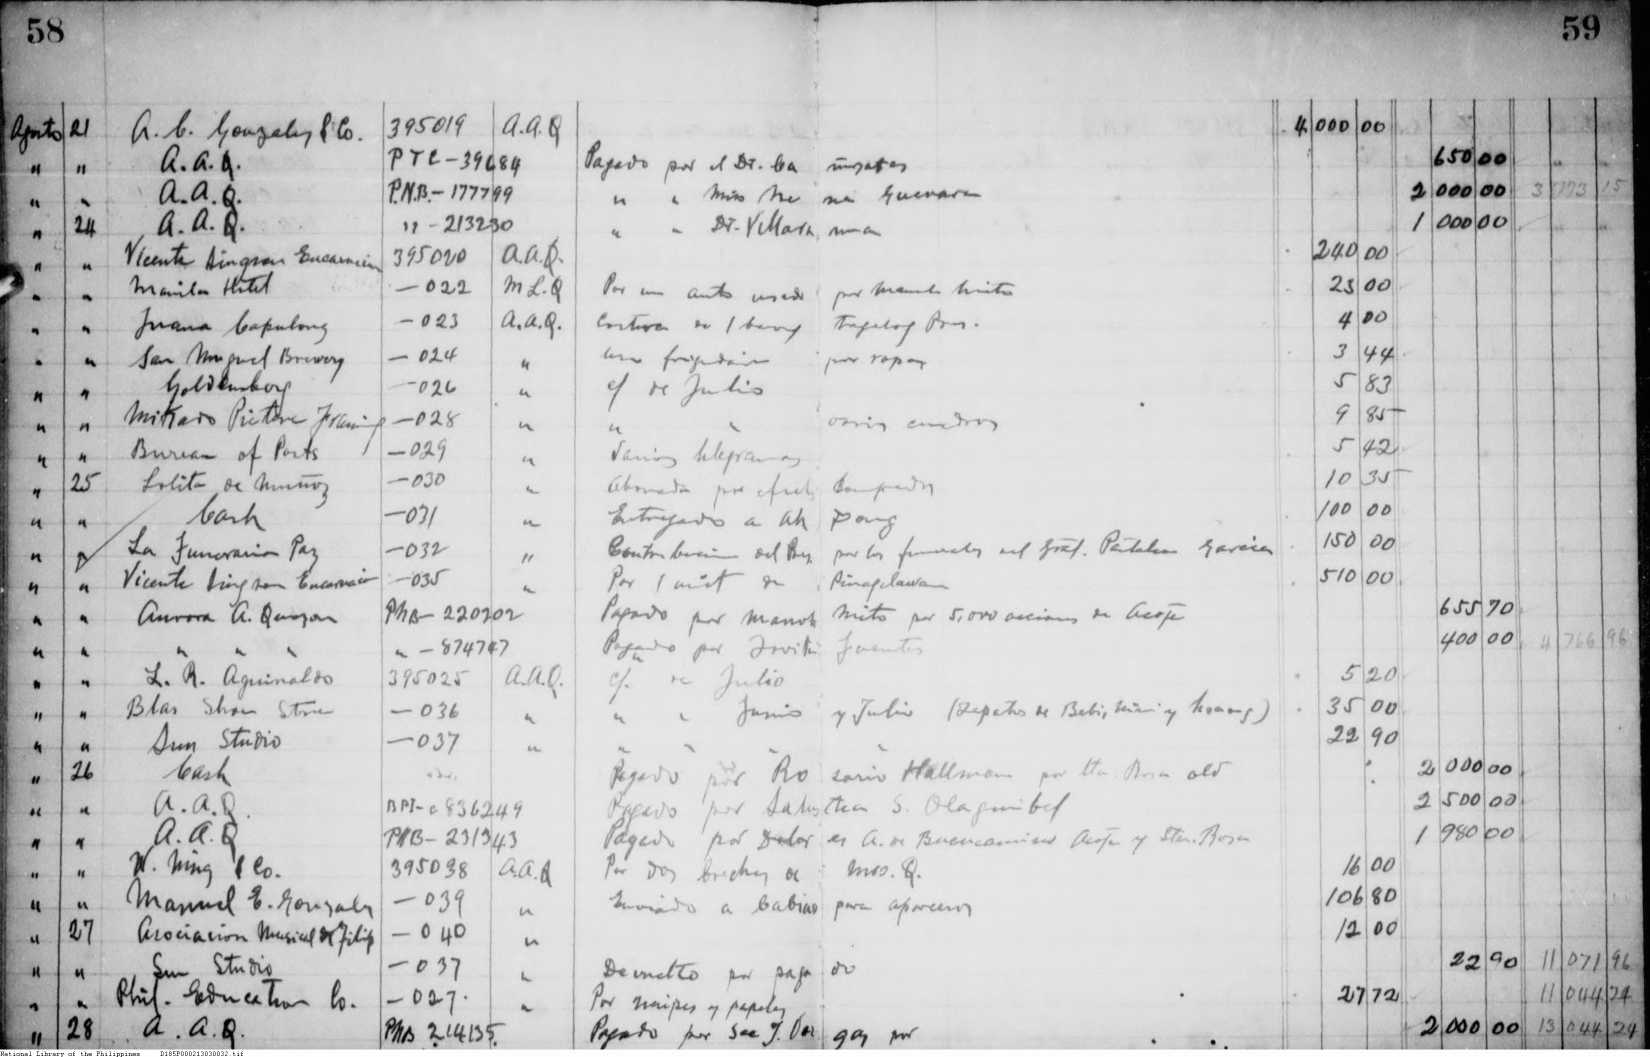 58 59
Agosto 21 A. C. Gonzalez & Co. 395019 A.A.Q 4 000 00
" " A.A.Q. PTC-39684 Pagado por el Dr. 650 00
" " A.A.Q. P.N.B.-177799 " " Miss Guevara 2 000 00 3 073 15
" 24 A.A.Q. " -213230 " " Dr. Villarama 1 000 00
" " Vicente Singson Encarnacion 395020 A.A.Q. 240 00
" " Manila Hotel -022 M L.Q Por un auto usado por 23 00
" " Juana Capulong -023 A.A.Q. Costura de 1 tagalog 4 00
" " San Miguel Brewery -024 " frigidaire por 3 44
" " Goldenberg -026 " c/ de Julio 5 83
" " Mikado Picture Framing -028 " " " varios cuadros 9 85
" " Bureau of Posts -029 " Varios telegramas 5 42
" 25 Lolita de Muñoz -030 " Abonada por comprados 10 35
" " Cash -031 " Entregado a Ah Pong 100 00
" " La Funeraria Paz -032 " Contribucion del por los funerales del Gral. Pantaleon Garcia 150 00
" " Vicente Singson Encarnacion -035 " Por 1 de 510 00
" " Aurora A. Quezon PNB-220202 Pagado por por 5,000 acciones de Acoje 655 70
" " " " " " -874747 Pagado por Fuentes 400 00 4 766 96
" " L. R. Aguinaldo 395025 A.A.Q. c/. de Julio 5 20
" " Blas Shoe Store -036 " " " Junio y Julio (Zapatos de Baby, Nini y ) 35 00
" " Sun Studio -037 " " " " " 22 90
" 26 Cash Pagado por Rosario Hallman por Sta. Rosa old 2 000 00
" " A.A.Q. BPI-c836249 Pagado por S. Olaguibel 2 500 00
" " A.A.Q PNB-231343 Pagado por Dolores A. de Buencamino Acoje y Sta. Rosa 1 980 00
" " W. Ning & Co. 395038 A.A.Q Por dos de Mrs. Q. 16 00
" " Manuel E. Gonzalez -039 " Enviado a Cabiao para aparceros 106 80
" 27 Asociacion Musical de Filip -040 " 12 00
" " Sun Studio -037 " Devuelto por pagado 22 90 11 071 96
" " Phil. Education Co. -027. " Por naipes y papeles 27 72 11 044 24
" 28 A. A.Q. PNB 214135. Pagado por J. Vargas por 2 000 00 13 044 24
National Library of the Philippines D185P000213030032.tif